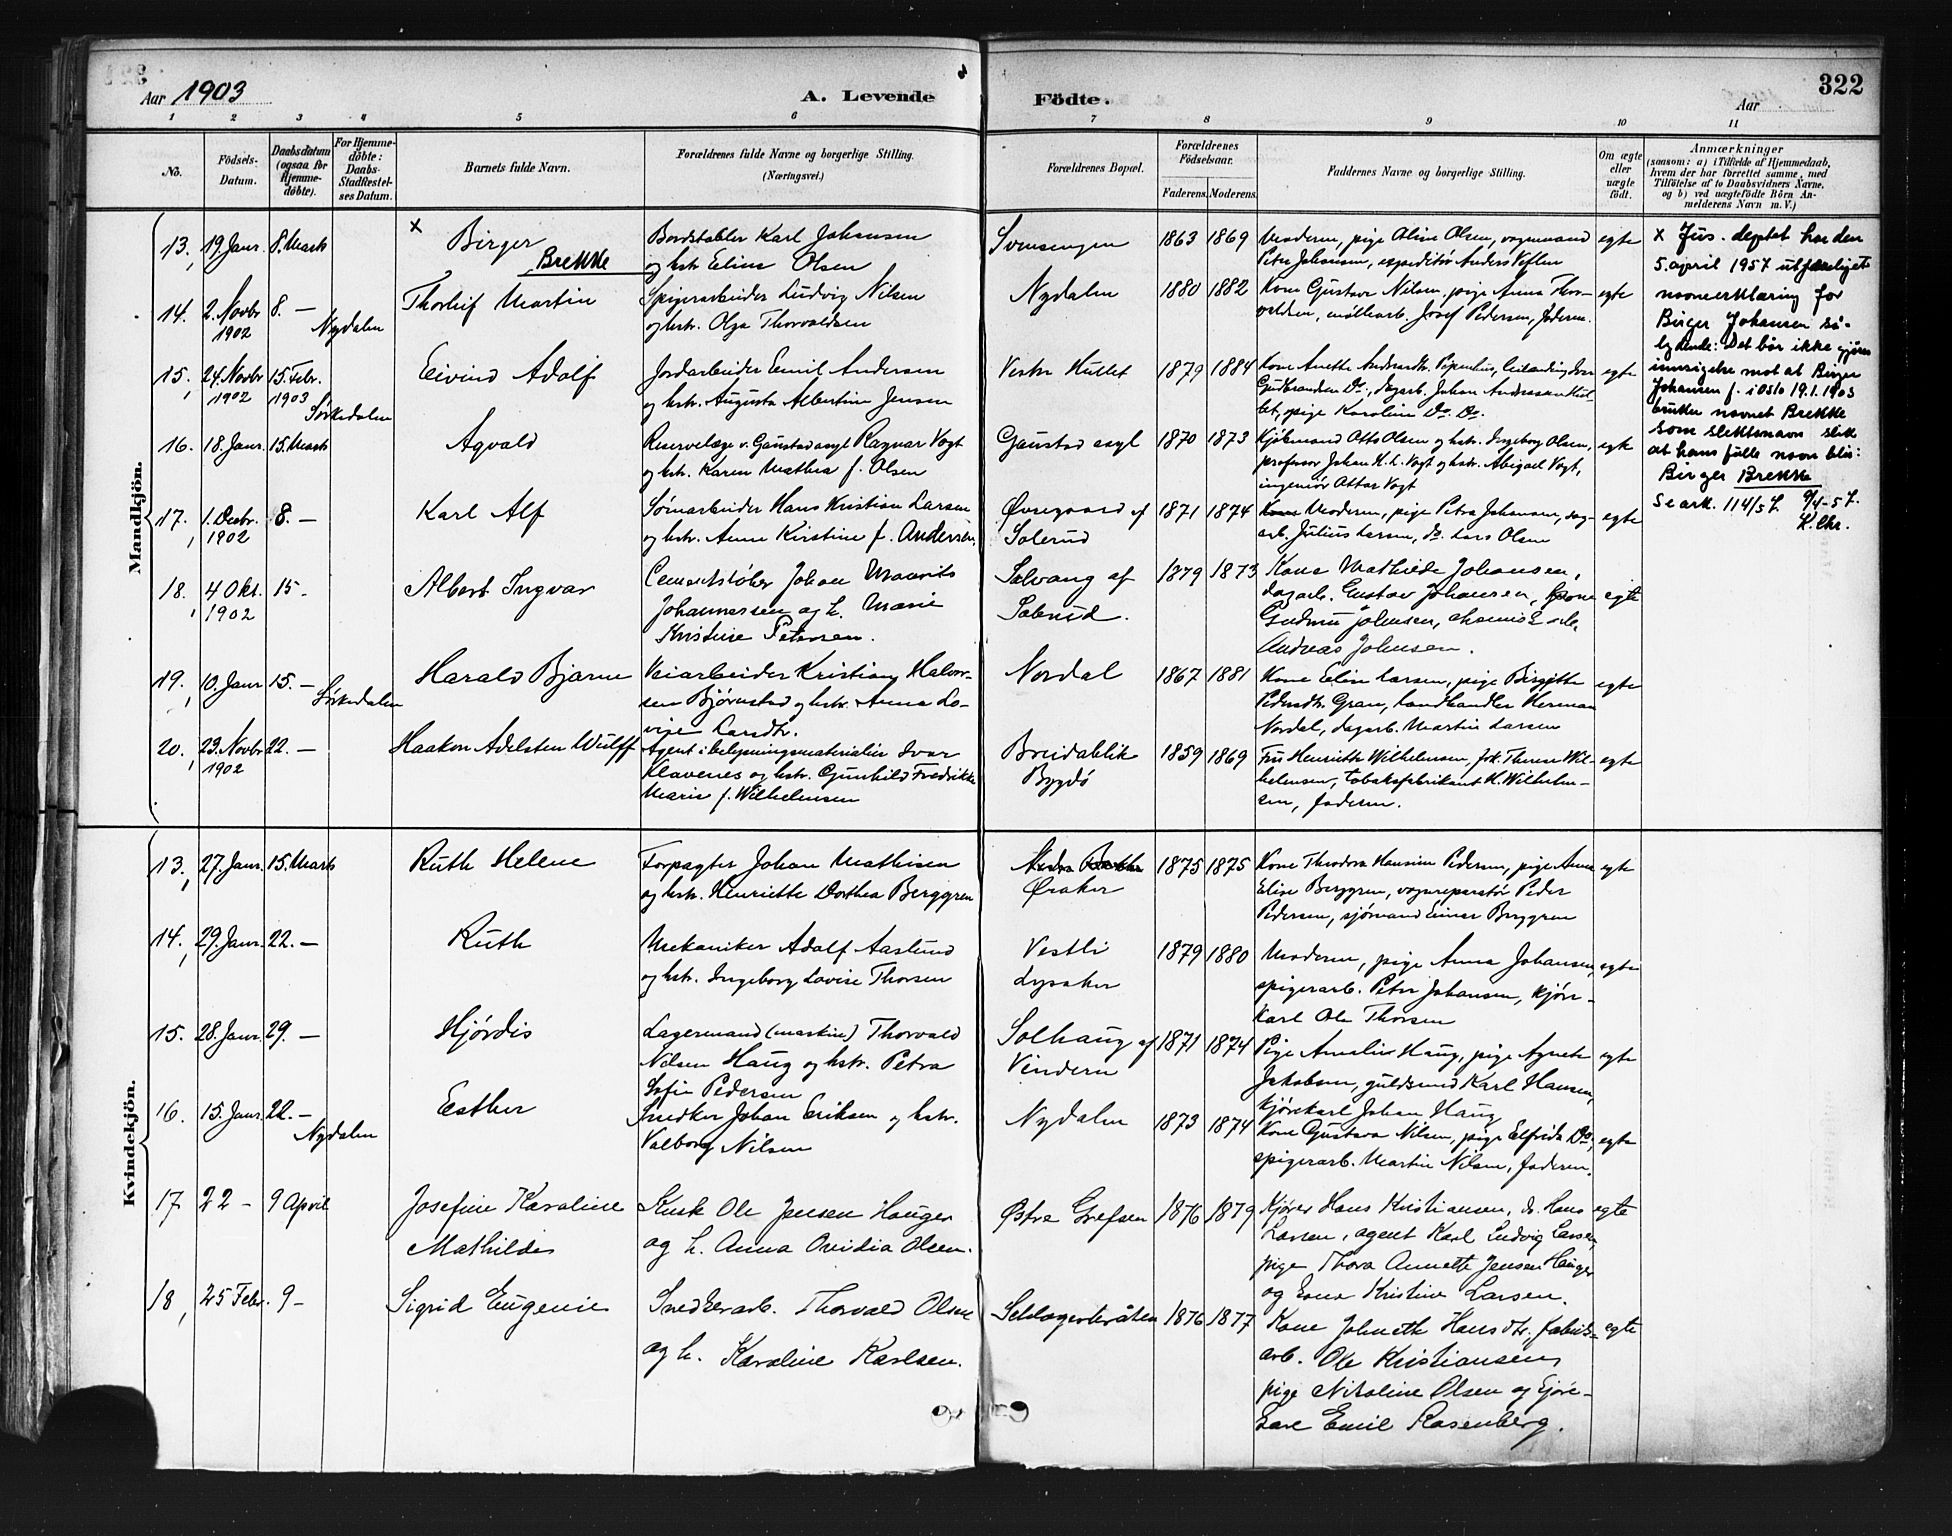 Aar 1903
A. Levende
Födte.
Aar
322
1 2 3 4 5 6 7 8 9 10 11
No.
Födsels-
Datum.
Daabsdatum
(ogsaa for
Hjemme-
döbte).
For Hjemme-
döbte:
Daabs-
Stadfæstel-
ses Datum.
Barnets fulde Navn.
Forældrenes fulde Navne og borgerlige Stilling.
(Næringsvei.)
Forældrenes Bopæl.
Forældrenes
Födselsaar.
Faderens. Moderens.
Faddernes Navne og borgerlige Stilling.
Om ægte
eller
uægte
födt.
Anmærkninger
(saasom: a) i Tilfælde af Hjemmedaab,
hvem der har forrettet samme, med
Tilföielse af to Daabsvidners Navne,
og b) ved uægtefödte Börn An-
melderens Navn m. V.)
Mandkjön.
13, 19 Janr. 8. Marts
x Birger
Brekke
Bordstabler Karl Johansen
og hstr. Eline Olsen
Svensengen 1863 1869
Moderen, pige Oline Olsen, vognmand
Peter Johansen, expeditör Anders Veflen
egte
x Jus. deptet har den
5. april 1957 utferdiget
navneerklæring for
Birger Johansen så-
lydende: Det bör ikke gjöres
innsigelse mot at Birger
Johansen f. i Oslo 19.1.1903
bruker navnet Brekke
som slektsnavn slik
at hans fulle navn blir:
Birger Brekke
Se ark. 114/57. 9/4-57.
K.Chr.
14. 2. Novbr 8. —
1902
Nydalen
Thorleif Martin
Spigerarbeider Ludvig Nilsen
og hstr. Olga Thorvaldsen
Nydalen 1880 1882
Kone Gustava Nilsen, pige Anna Thor-
valdsen, möllearb. Josef Pedersen, faderen.
egte
15, 24. Novbr 15. Febr.
1902 1903
Sörkedalen
Eivind Adolf
Jordarbeider Emil Andersen
og hstr. Augusta Albertine Jensen
Vestre Hullet 1879 1884
Gudbrandsen Do., dagarb. Johan Andreassen Hul-
let, pige Karoline Do. Do.
egte
16. 18. Janr. 15. Marts
Agvald
Reservelæge v. Gaustad asyl Ragnar Vogt
og hstr. Karen Mathea f. Olsen
Gaustad asyl 1870 1873
Kjöbmand Otto Olsen og hstr. Ingeborg Olsen,
professor Johan H. L. Vogt og hstr. Abigael Vogt,
ingeniör Ottar Vogt
egte
17. 1. Decbr. 8. —
1902
Karl Alf
Hans Kristian Larsen
og hstr. Anne Kirstine f. Andersen.
Övregaard af
Solerud
1871 1874
Moderen, pige Petra Johansen, dag-
arb. Julius Larsen, do. Lars Olsen
egte
18. 4 Okt. 15 -
1902
Albert Ingvar
Cementstöber Johan Maurits
Johannesen og h. Marie
Kristine Petersen.
Solvang af
Solerud.
1879 1873
Kone Mathilde Johansen,
dagarb. Gustav Johansen, kone
Gudrun Johnsen,
Andreas Johnsen.
egte
19. 10. Janr 15. —
Sörkedalen
Harald Bjarne
Veiarbeider Kristian Halvor-
sen Björnstad og hstr. Anna Lo-
vise Larsdtr.
Nordal 1867 1881
Kone Elise Larsen, pige Birgitte
Pedersdtr. Gran, Landhandler Herman
Nordal, dagarb. Martin Larsen
egte
20. 23. Novbr 22. —
1902
Haakon Adelsten Wulff
Agent i belysningsmaterialier Ivar
Klavenes og hstr. Gunhild Fredrikke
Marie f. Wilhelmsen
Breidablik
Bygdö
1859 1869
Fru Henriette Wilhelmsen, frk. Therese Wil-
helmsen, tobaksfabrikant H. Wilhelm-
sen, faderen.
egte
Kvindekjön.
13, 27. Janr. 15. Marts
Ruth Helene
Forpagter Johan Mathisen
og hstr. Henriette Dorthea Berggren
Öraker
1875 1875
Kone Theodora Hansine Pedersen, pige Anna
Elise Berggren, vognreparatör Peder
Pedersen, sjömand Einar Berggren
egte
14, 29. Janr. 22. —
Ruth
Mekaniker Adolf Aaslund
og hstr. Ingeborg Lovise Thorsen
Vestli
Lysaker
1879 1880
Moderen, pige Anna Johansen,
spigerarb. Peter Johansen, kjöre-
karl Ole Thorsen
egte
15. 28. Janr. 29. —
Hjördis
Lagermand (maskin) Thorvald
Nilsen Haug og hstr. Petra
Sofie Pedersen
Solhaug af
Vinderen
1871 1874
Pige Amalie Haug, pige Agnete
Jakobsen, guldsmed Karl Hansen,
kjörekarl Johan Haug
egte
16. 15. Janr. 22. —
Nydalen
Esther
Snedker Johan Eriksen og hstr.
Valborg Nilsen
Nydalen 1873 1874
Kone Gustava Nilsen, pige Elfrida Do.,
spigerarb. Martin Nilsen, faderen.
egte
17 22 - 9 April
Josefine Karoline
Mathilde
Kusk Ole Jensen Hauger
og h. Anna Ovidia Olsen.
Östre Grefsen 1876 1879
Kjörer Hans Kristiansen, do. Hans
Larsen, agent Karl Ludvig Larsen,
pige Thora Annette Jensen Hauger
og Kristine Larsen.
egte
18, 25 Febr. 9 -
Sigrid Eugenie
Snedkerarb. Thorvald Olsen
og h. Karoline Karlsen.
1876 1877
Kone Johnette Hansdtr. fabrik-
arb. Ole Kristiansen,
pige Nikoline Olsen og kjöre-
kare Emil Rosenberg.
egte